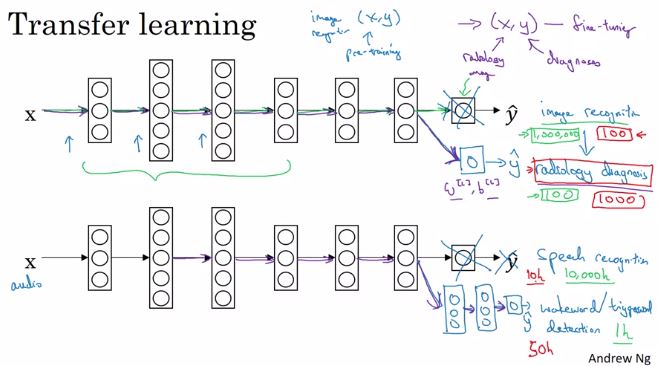 Transfer learning
image (x, y)
recognition
pre-training
→ (x, y) — fine-tuning
radiology
image
diagnoses
x
ŷ
image recognition
1,000,000 100
ŷ
radiology diagnosis
w[L], b[L]
100 1000
x
audio
ŷ
Speech recognition
10h 10,000h
wakeword/triggerword
detection 1h
ŷ
50h
Andrew Ng